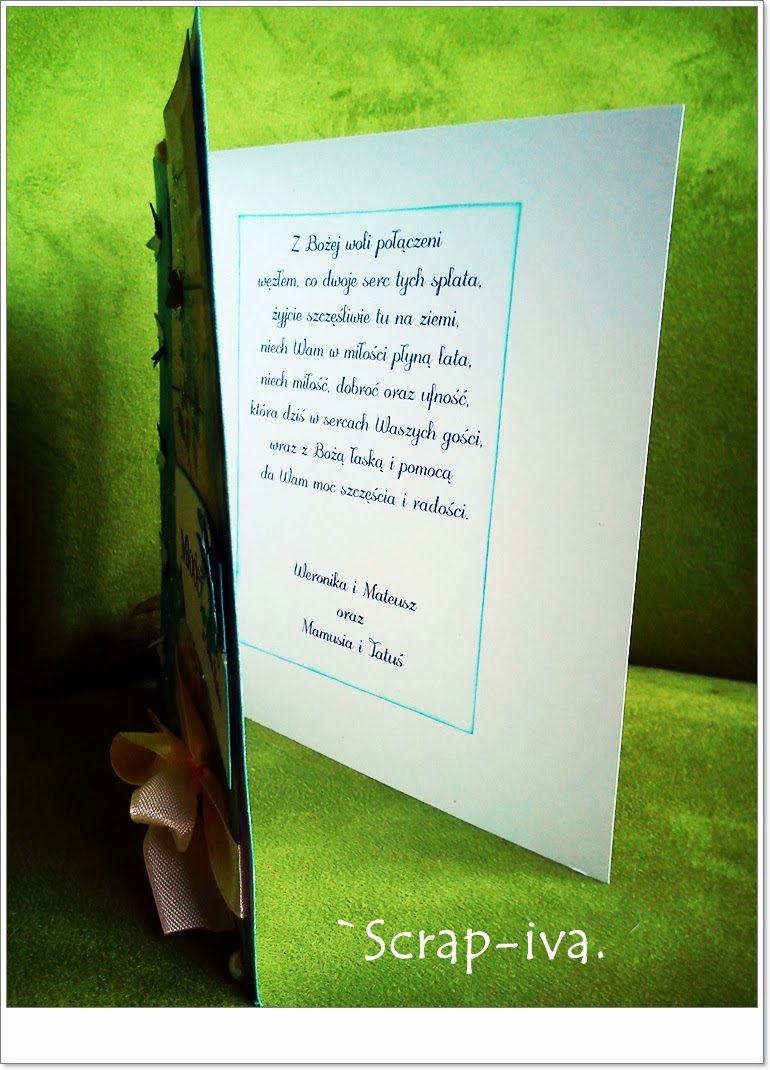 Z Bożej woli połączeni
węzłem, co dwoje serc tych splata,
żyjcie szczęśliwie tu na ziemi,
niech Wam w miłości płyną lata,
niech miłość, dobroć oraz ufność,
która dziś w sercach Waszych gości,
wraz z Bożą łaską i pomocą
da Wam moc szczęścia i radości.
Weronika i Mateusz
oraz
Mamusia i Tatuś
`Scrap-iva.